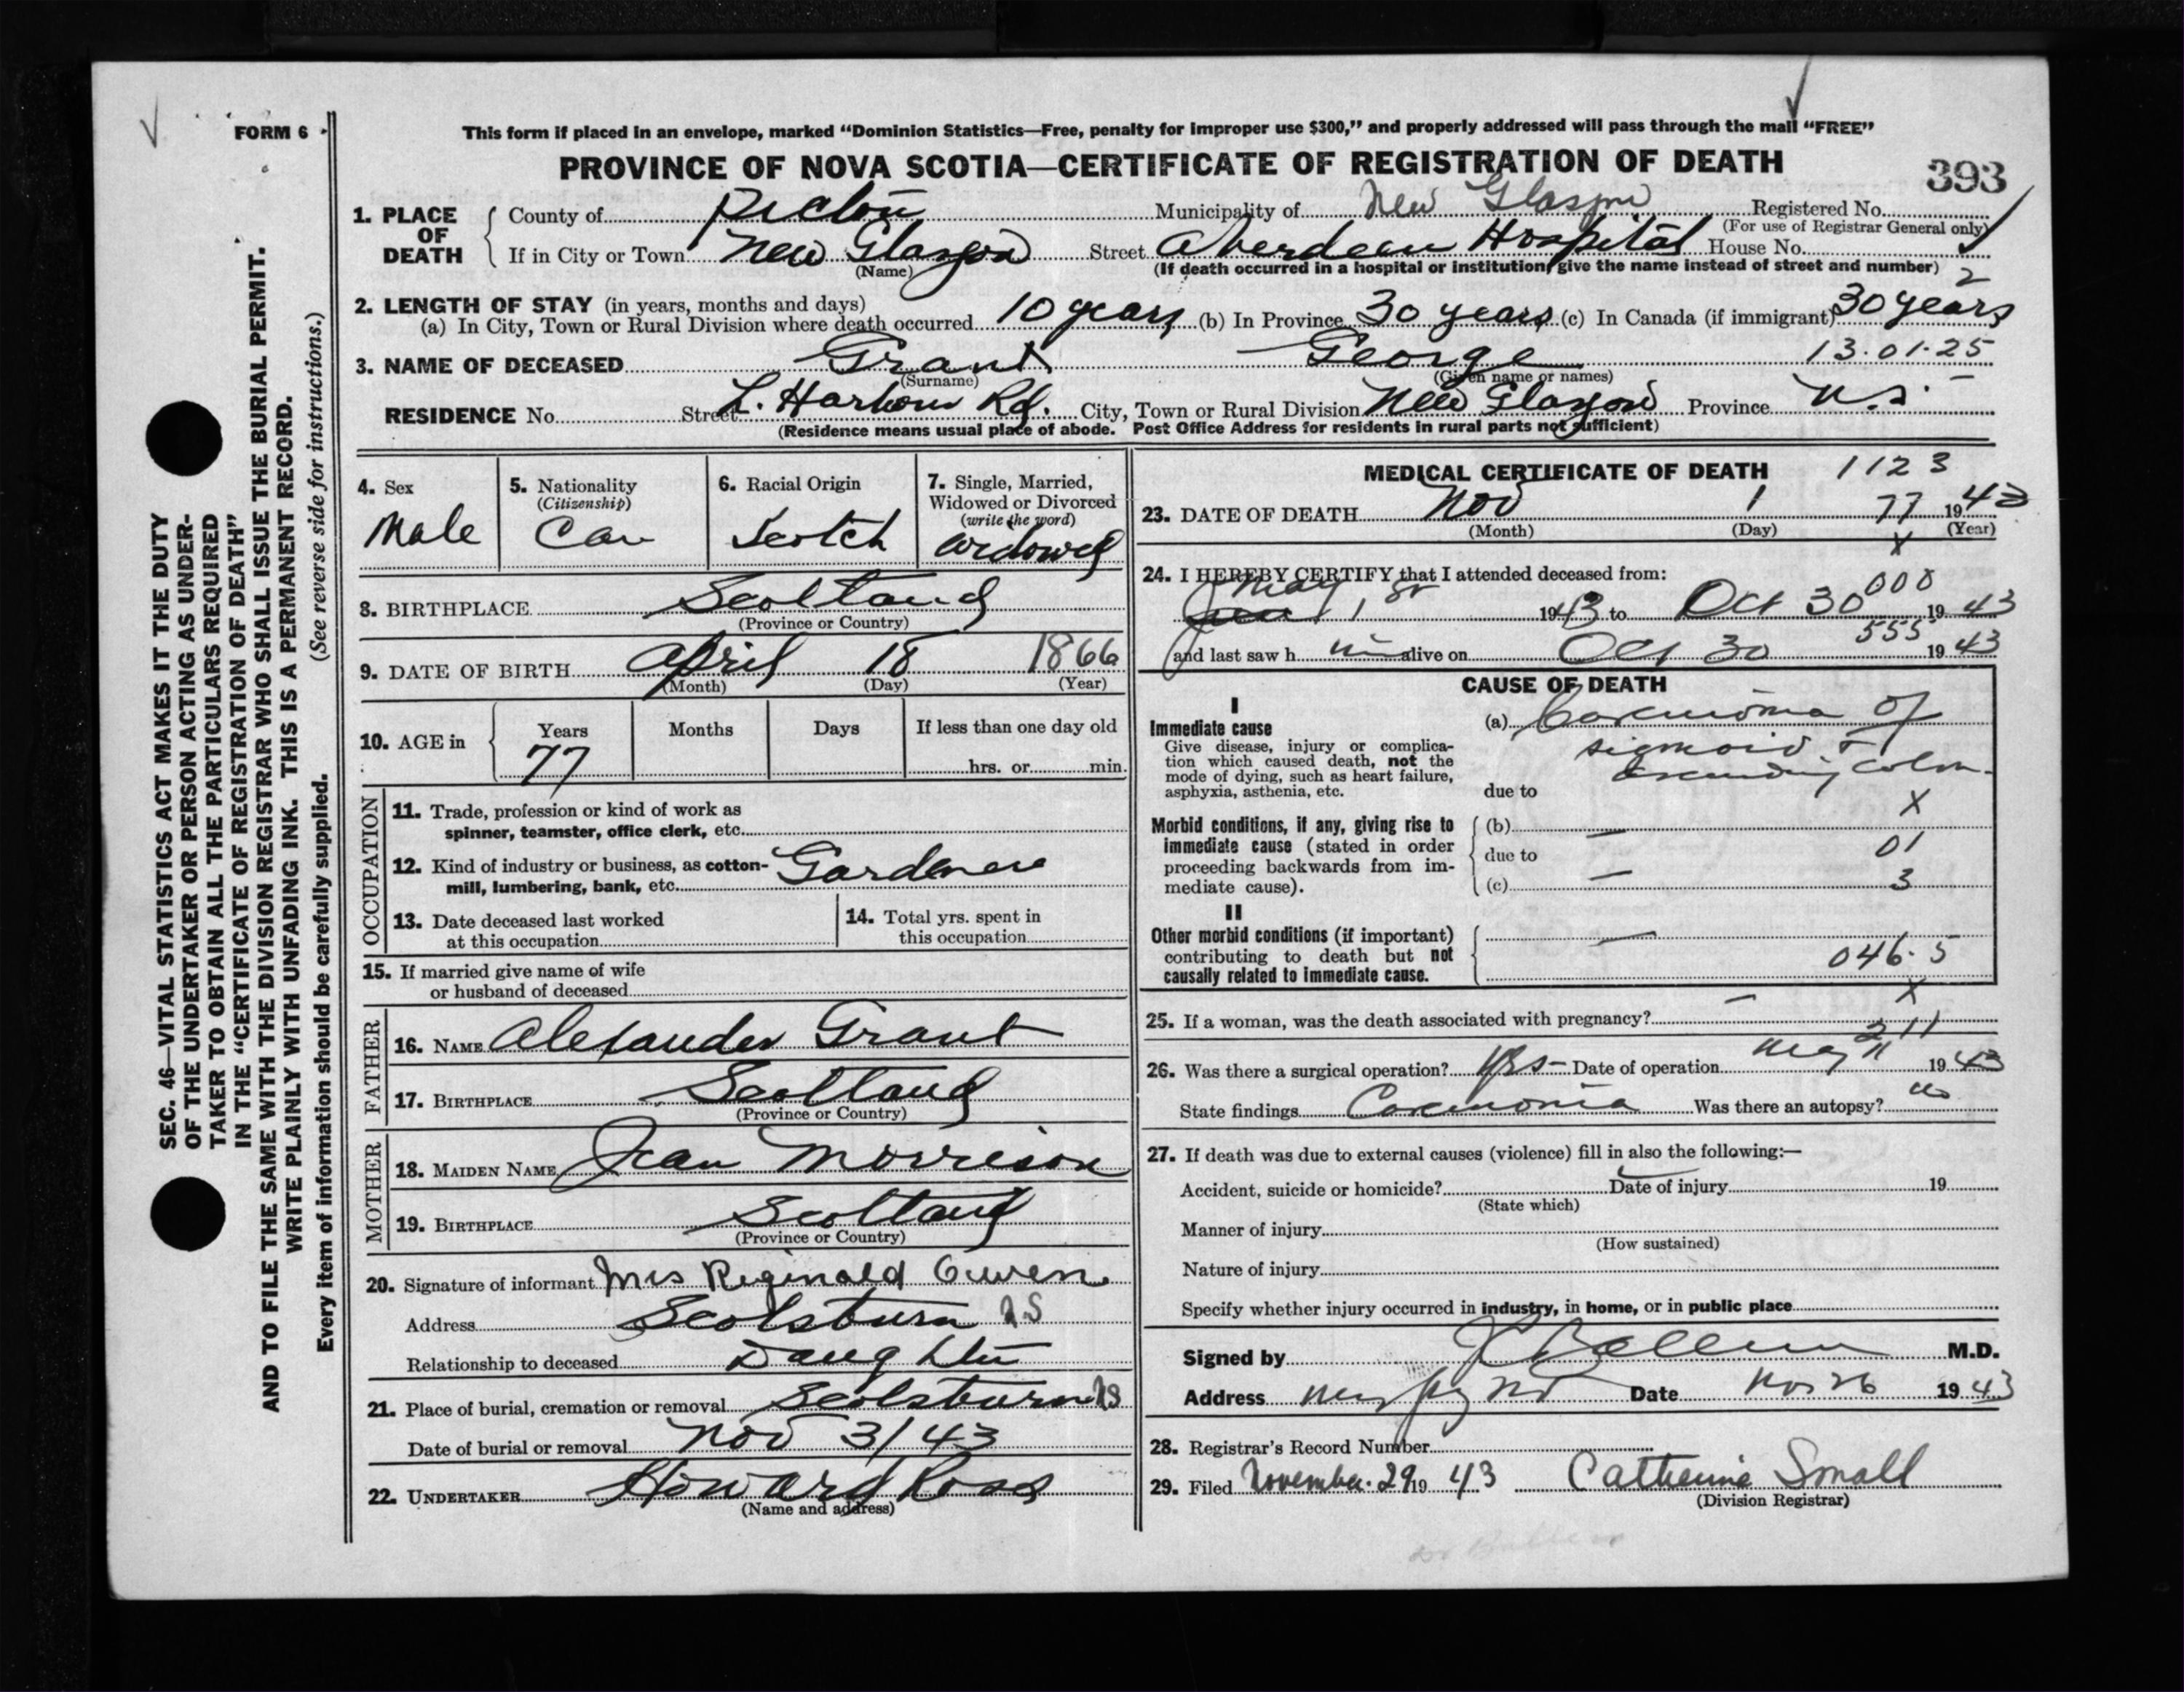 FORM 6
This form if placed in an envelope, marked “Dominion Statistics—Free, penalty for improper use $300,” and properly addressed will pass through the mail “FREE”
PROVINCE OF NOVA SCOTIA—CERTIFICATE OF REGISTRATION OF DEATH
393
1. PLACE OF DEATH
County of Pictou Municipality of New Glasgow Registered No.
(For use of Registrar General only)
If in City or Town New Glasgow Street Aberdeen Hospital House No.
(Name) (If death occurred in a hospital or institution, give the name instead of street and number) 2
2. LENGTH OF STAY (in years, months and days)
(a) In City, Town or Rural Division where death occurred 10 years (b) In Province 30 years (c) In Canada (if immigrant) 30 years
3. NAME OF DECEASED Grant George 13-01-25
(Surname) (Given name or names)
RESIDENCE No. Street L. Harbour Rd. City, Town or Rural Division New Glasgow Province N.S.
(Residence means usual place of abode. Post Office Address for residents in rural parts not sufficient)
4. Sex
Male
5. Nationality
(Citizenship)
Can
6. Racial Origin
Scotch
7. Single, Married,
Widowed or Divorced
(write the word)
Widowed
8. BIRTHPLACE Scotland
(Province or Country)
9. DATE OF BIRTH April 18 1866
(Month) (Day) (Year)
10. AGE in
Years Months Days If less than one day old
77 hrs. or min.
OCCUPATION
11. Trade, profession or kind of work as
spinner, teamster, office clerk, etc.
12. Kind of industry or business, as cotton-
mill, lumbering, bank, etc. Gardener
13. Date deceased last worked
at this occupation
14. Total yrs. spent in
this occupation
15. If married give name of wife
or husband of deceased
FATHER
16. NAME Alexander Grant
17. BIRTHPLACE Scotland
(Province or Country)
MOTHER
18. MAIDEN NAME Jean Morrison
19. BIRTHPLACE Scotland
(Province or Country)
20. Signature of informant Mrs Reginald Owen
Address Scotsburn NS
Relationship to deceased Daughter
21. Place of burial, cremation or removal Scotsburn NS
Date of burial or removal Nov 3/43
22. UNDERTAKER Howard Ross
(Name and address)
MEDICAL CERTIFICATE OF DEATH 1123
23. DATE OF DEATH Nov 1 77 1943
(Month) (Day) (Year)
X
24. I HEREBY CERTIFY that I attended deceased from:
May 1st 1943 to Oct 30 000 1943
and last saw him alive on Oct 30 555 1943
CAUSE OF DEATH
I
Immediate cause
Give disease, injury or complica-
tion which caused death, not the
mode of dying, such as heart failure,
asphyxia, asthenia, etc.
(a) Carcinoma of
sigmoid &
ascending colon
due to
X
Morbid conditions, if any, giving rise to
immediate cause (stated in order
proceeding backwards from im-
mediate cause).
(b) —
due to 01
(c) — 3
II
Other morbid conditions (if important)
contributing to death but not
causally related to immediate cause.
—
046.5
X
25. If a woman, was the death associated with pregnancy? —
211
26. Was there a surgical operation? Yes Date of operation May 11 1943
State findings Carcinoma Was there an autopsy? no
27. If death was due to external causes (violence) fill in also the following:—
Accident, suicide or homicide? Date of injury 19
(State which)
Manner of injury
(How sustained)
Nature of injury
Specify whether injury occurred in industry, in home, or in public place
Signed by M.D.
Address Date Nov 26 1943
28. Registrar's Record Number
29. Filed November 29 1943 Catherine Small
(Division Registrar)
SEC. 46—VITAL STATISTICS ACT MAKES IT THE DUTY
OF THE UNDERTAKER OR PERSON ACTING AS UNDER-
TAKER TO OBTAIN ALL THE PARTICULARS REQUIRED
IN THE “CERTIFICATE OF REGISTRATION OF DEATH”
AND TO FILE THE SAME WITH THE DIVISION REGISTRAR WHO SHALL ISSUE THE BURIAL PERMIT.
WRITE PLAINLY WITH UNFADING INK. THIS IS A PERMANENT RECORD.
Every item of information should be carefully supplied. (See reverse side for instructions.)